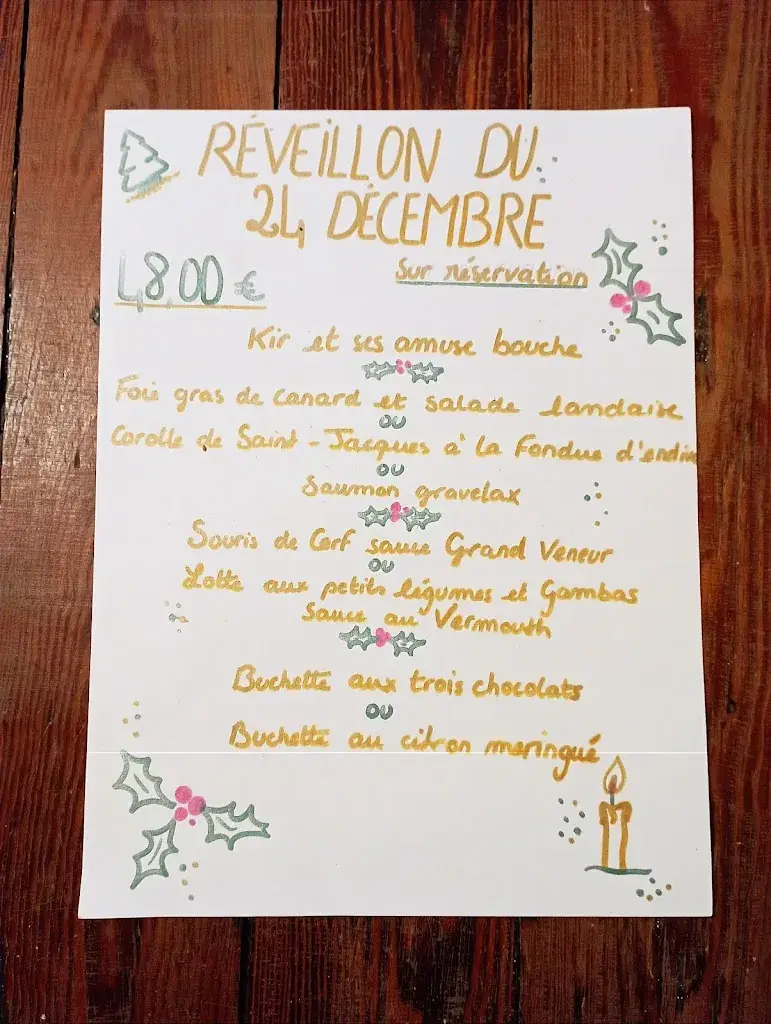 RÉVEiLLON DU
24 DÉCEMBRE
48,00 €
Sur réservation
Kir et ses amuse bouche
Foie gras de canard et salade landaise
ou
Corolle de Saint-Jacques à la Fondue d'endive
ou
Saumon gravelax
Souris de Cerf sauce Grand Veneur
ou
Lotte aux petits légumes et Gambas
Sauce au Vermouth
Buchette aux trois chocolats
ou
Buchette au citron meringué